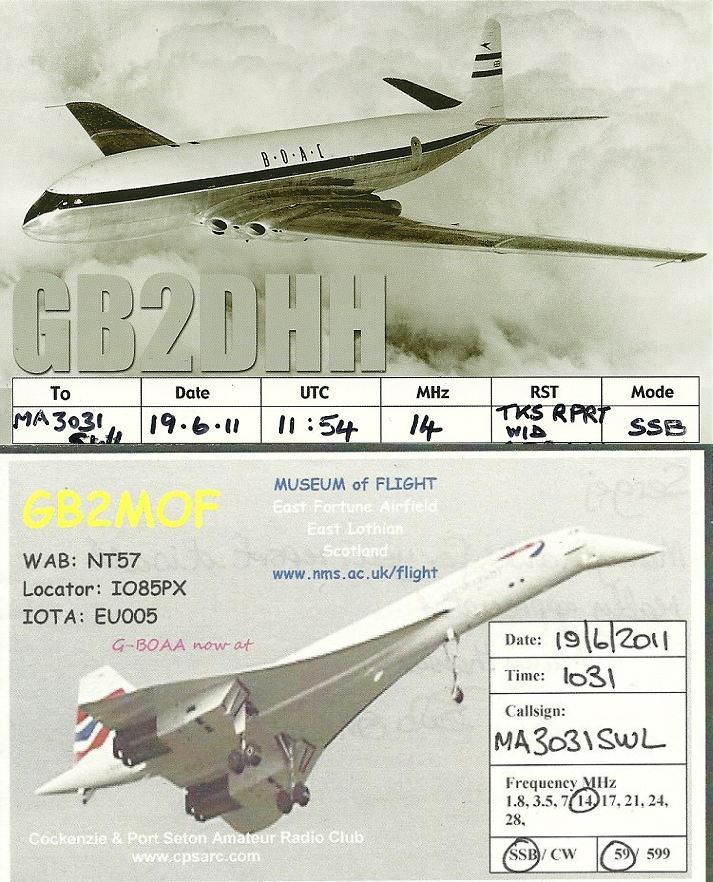 B·O·A·C
GB2DHH
To Date UTC MHz RST Mode
MA3031 19.6.11 11:54 14 TKS RPRT SSB
WID
GB2MOF
MUSEUM of FLIGHT
East Fortune Airfield
East Lothian
Scotland
www.nms.ac.uk/flight
WAB: NT57
Locator: IO85PX
IOTA: EU005
G-BOAA now at
Date: 19/6/2011
Time: 1031
Callsign:
MA3031SWL
Frequency MHz
1.8, 3.5, 7, 14, 17, 21, 24,
28,
SSB / CW 59 / 599
Cockenzie & Port Seton Amateur Radio Club
www.cpsarc.com